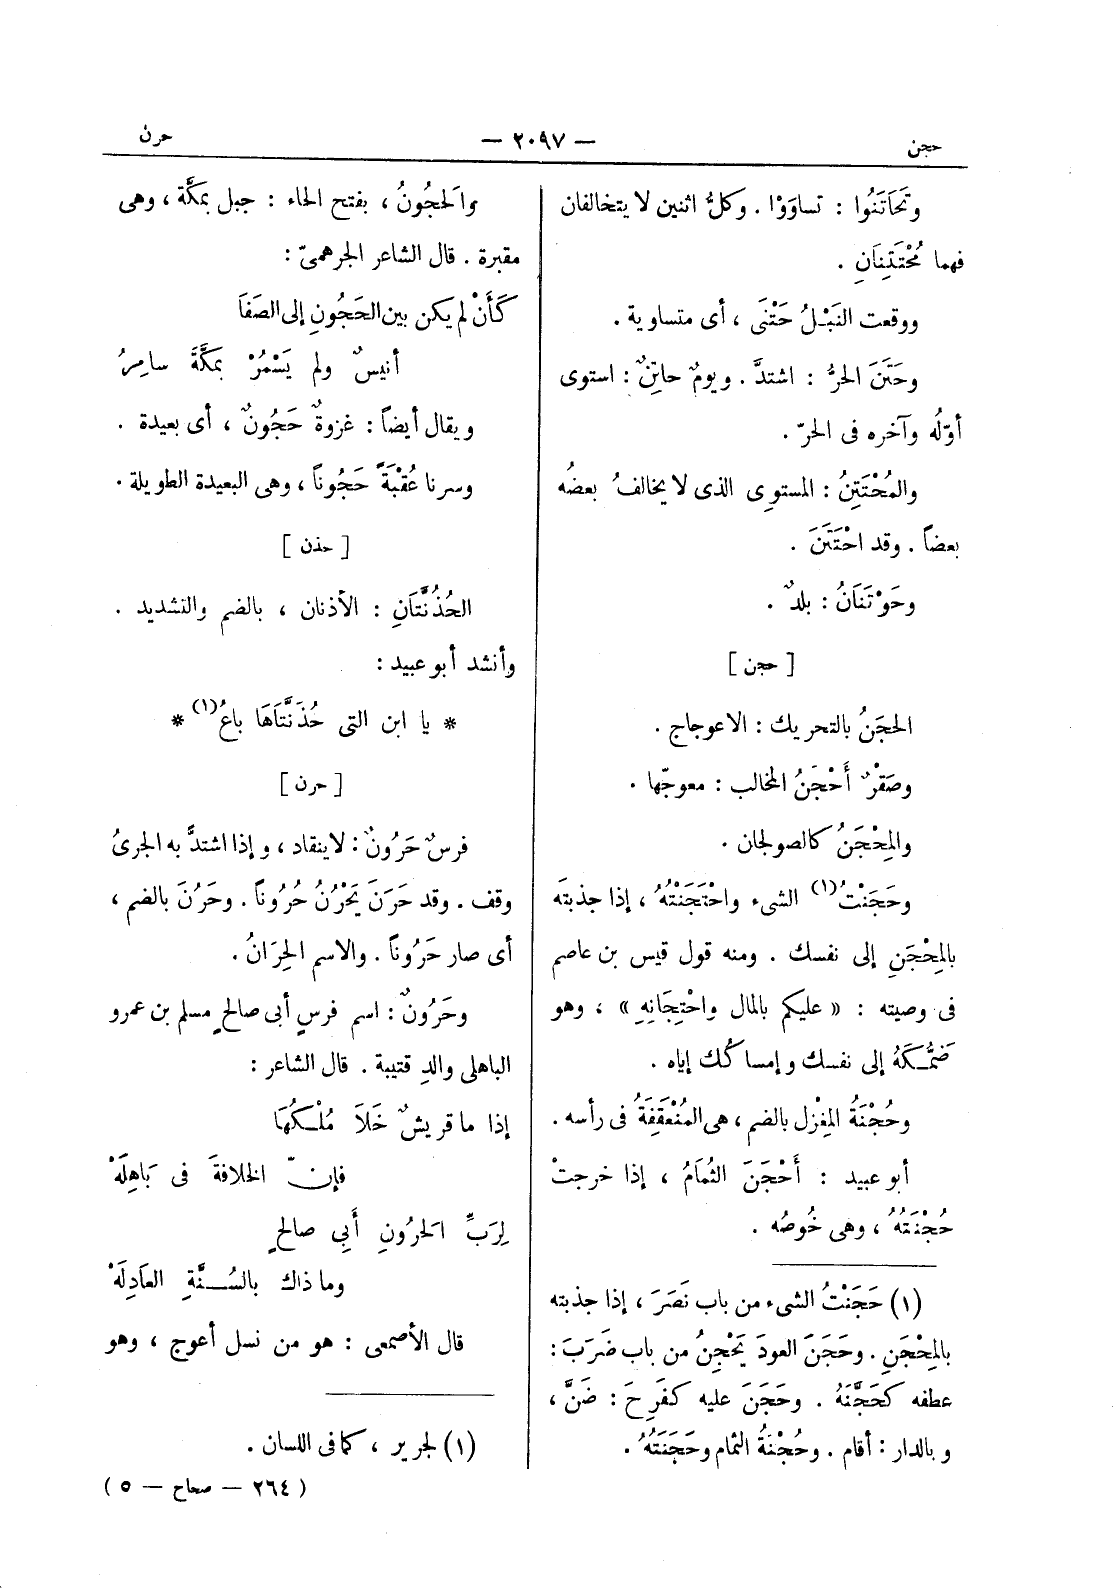 حجن
— ٢٠٩٧ —
حرن
وتَحَاتَنُوا : تساوَوْا . وكلُّ اثنين لا يتخالفان
فهما مُحْتَتِنَانِ .
ووقعت النَبْلُ حَتْنَى ، أى متساوية .
وحَتَنَ الحرُّ : اشتدَّ . ويومٌ حاتِنٌ : استوى
أوّلُه وآخره فى الحرّ .
والمُحْتَتِنُ : المستوِى الذى لا يخالفُ بعضُه
بعضاً . وقد احْتَتَنَ .
وحَوْتَنَانُ : بلدٌ .
[ حجن ]
الحجَنُ بالتحريك : الاعوجاج .
وصَقْرٌ أَحْجَنُ المخالب : معوجّها .
والمِحْجَنُ كالصولجان .
وحَجَنْتُ(١) الشىء واحْتَجَنْتُهُ ، إذا جذبتَه
بالمِحْجَنِ إلى نفسك . ومنه قول قيس بن عاصم
فى وصيته : « عليكم بالمال واحْتِجَانِهِ » ، وهو
ضَمُّكَهُ إلى نفسك وإمساكُك إياه .
وحُجْنَةُ المِغْزل بالضم ، هى المُنْعَقِفَةُ فى رأسه .
أبو عبيد : أَحْجَنَ الثُمَامُ ، إذا خرجتْ
حُجْنَتُهُ ، وهى خُوصُه .
(١) حَجَنْتُ الشىء من باب نَصَرَ ، إذا جذبته
بالمِحْجَنِ . وحَجَنَ العودَ يَحْجِنُ من باب ضَرَبَ :
عطفه كَحَجَّنَهُ . وحَجَنَ عليه كَفَرِحَ : ضَنَّ ،
وبالدار : أقام . وحُجْنَةُ الثمام وحَجَنَتُهُ .
والَحجُونُ ، بفتح الحاء : جبل بمكَّة ، وهى
مقبرة . قال الشاعر الجرهمىّ :
كَأَنْ لم يكن بين الحَجُونِ إلى الصَفَا
أنيسٌ ولم يَسْمُرْ بمكَّةَ سامِرُ
ويقال أيضاً : غزوةٌ حَجُونٌ ، أى بعيدة .
وسرنا عُقْبَةً حَجُوناً ، وهى البعيدة الطويلة .
[ حذن ]
الحُذُنَّتَانِ : الأذنان ، بالضم والتشديد .
وأنشد أبو عبيد :
* يا ابن التى حُذُنَّتَاهَا باعُ(١) *
[ حرن ]
فرسٌ حَرُونٌ : لا ينقاد ، وإذا اشتدَّ به الجرىُ
وقف . وقد حَرَنَ يَحْرُنُ حُرُوناً . وحَرُنَ بالضم ،
أى صار حَرُوناً . والاسم الحِرَانُ .
وحَرُونٌ : اسم فرسِ أبى صالحٍ مسلم بن عمرو
الباهلى والدِ قتيبة . قال الشاعر :
إذا ما قريشٌ خَلَا مُلْكُهَا
فإنّ الخلافةَ فى بَاهِلَهْ
لِرَبِّ الَحرُونِ أَبِى صالحٍ
وما ذاك بالسُنَّةِ العَادِلَهْ
قال الأصمعى : هو من نسل أعوج ، وهو
(١) لجرير ، كما فى اللسان .
( ٢٦٤ — صحاح — ٥ )